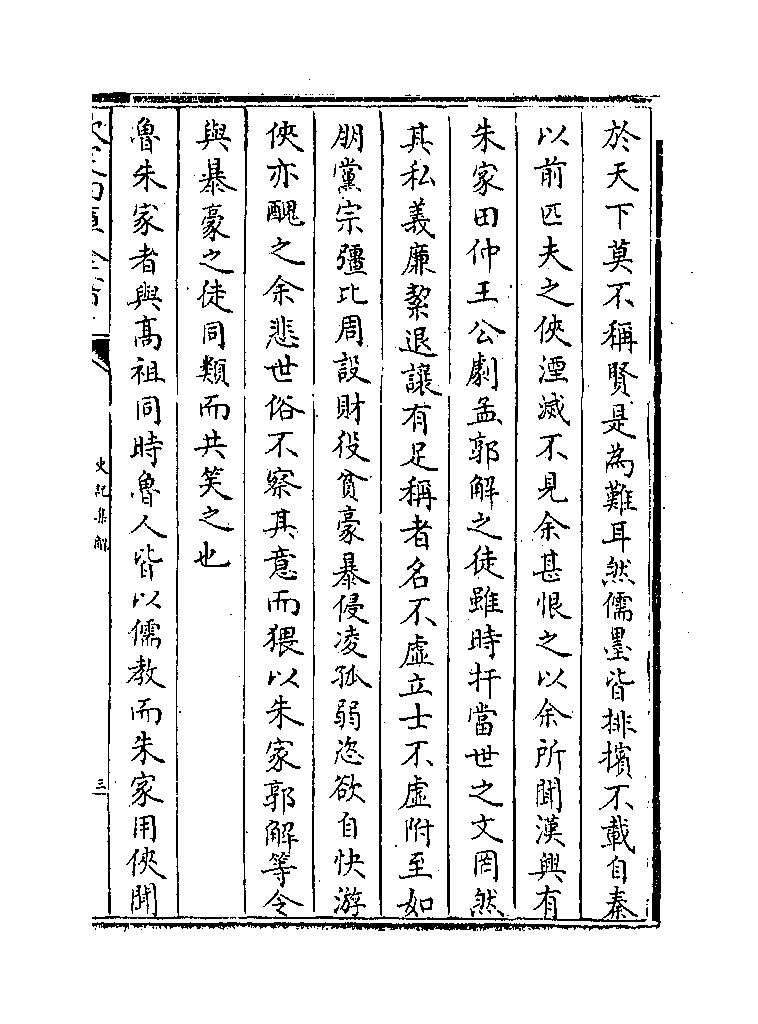 於天下莫不稱賢是為難耳然儒墨皆排擯不載自秦
以前匹夫之俠湮滅不見余甚恨之以余所聞漢興有
朱家田仲王公劇孟郭解之徒雖時扞當世之文罔然
其私義廉絜退讓有足稱者名不虛立士不虛附至如
朋黨宗彊比周設財役貧豪暴侵凌孤弱恣欲自快游
俠亦醜之余悲世俗不察其意而猥以朱家郭解等令
與暴豪之徒同類而共笑之也
魯朱家者與髙祖同時魯人皆以儒教而朱家用俠聞
史記集解
三